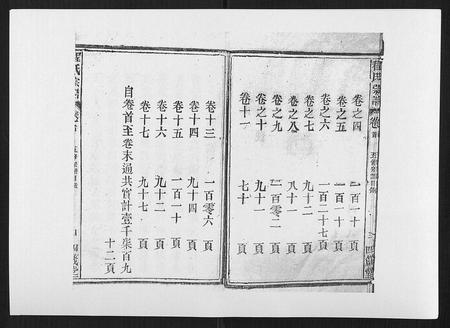 程氏宗譜 卷首
卷之四 一百一十 頁
卷之五 一百一十 頁
卷之六 一百二十七 頁
卷之七 九十二 頁
卷之八 八十一 頁
卷之九 一百零二 頁
卷之十 九十一 頁
卷十一 七十 頁
卷十三 一百零六 頁
卷十四 九十四 頁
卷十五 一百一十 頁
卷十六 九十二 頁
卷十七 九十七 頁
自卷首至卷末通共實計壹千柒百九
十二頁
程氏宗譜